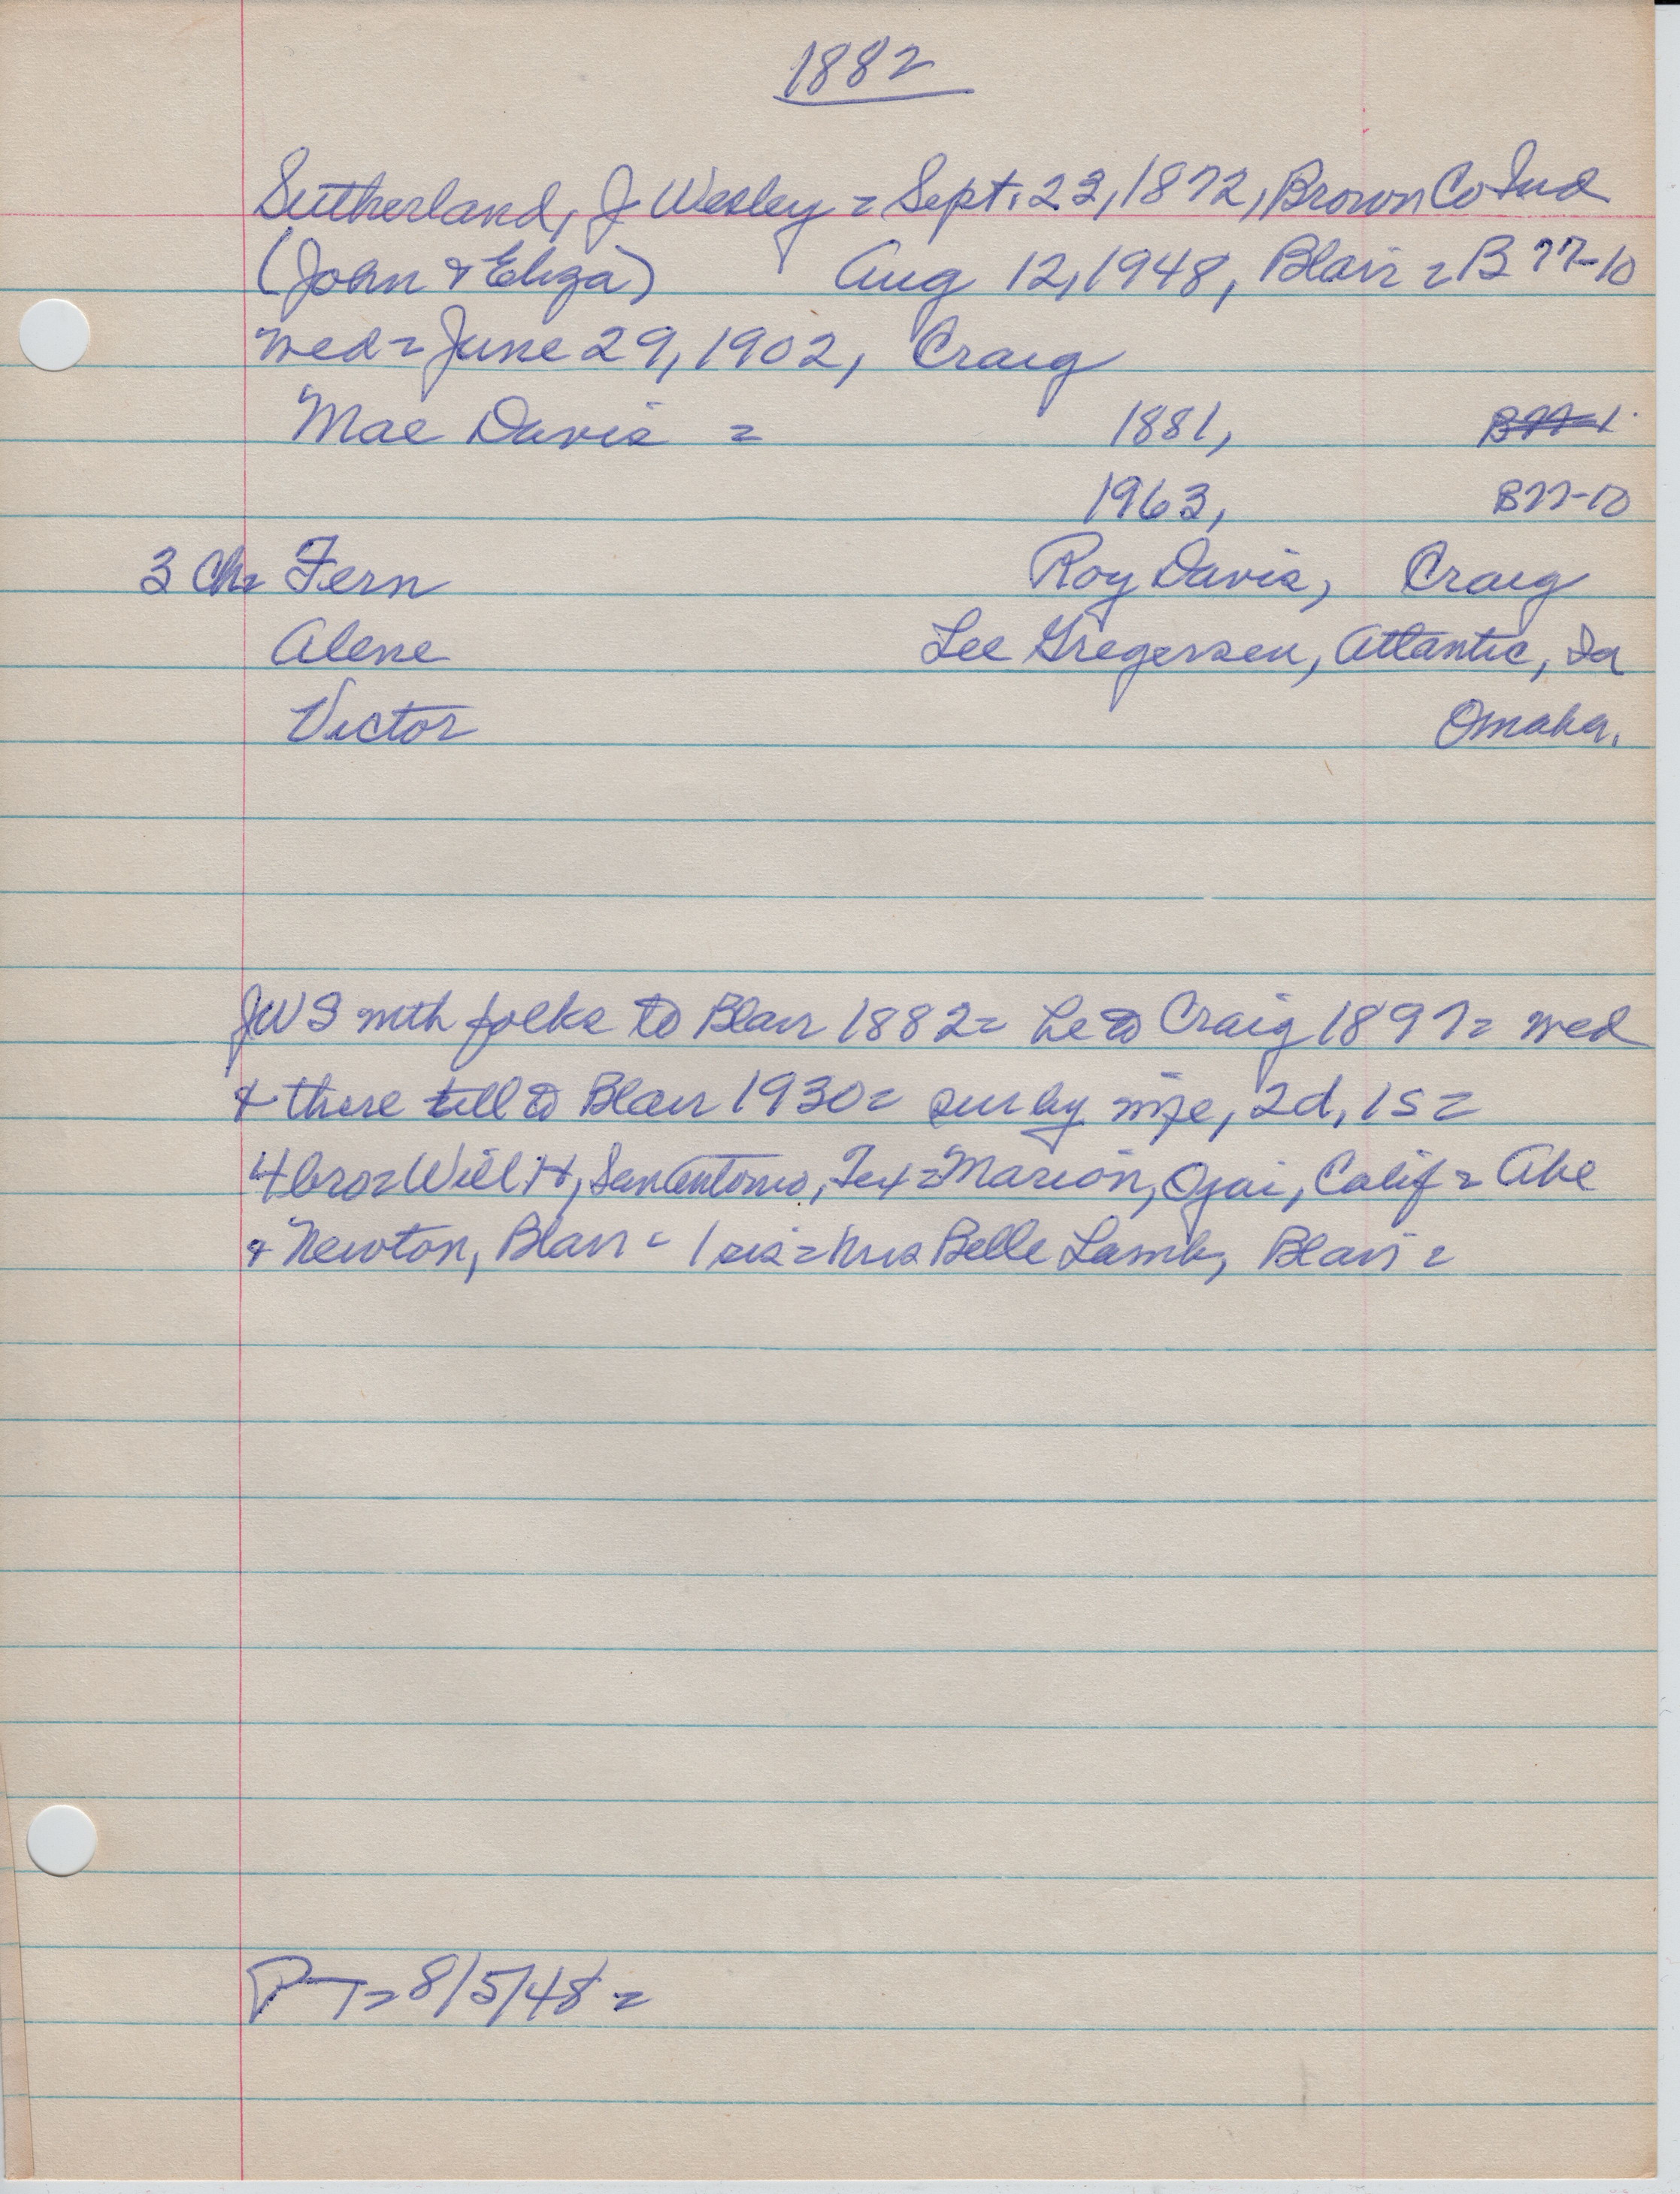 1882
Sutherland, J Wesley = Sept. 23, 1872, Brown Co Ind
(John & Eliza) Aug 12, 1948, Blair = B 77-10
wed = June 29, 1902, Craig
Mae Davis = 1881,
1963, B77-10
3 Ch = Fern Roy Davis, Craig
Alene Lee Gregersen, Atlantic, Ia
Victor Omaha.
JWS with folks to Blair 1882 = he to Craig 1897 = wed
& there till to Blair 1930 = sur by wife, 2d, 1s =
4 bro = Will H, San Antonio, Tex = Marion, Ojai, Calif = Abe
& Newton, Blair = 1 sis = Mrs Belle Lamb, Blair =
PT = 8/5/48 =